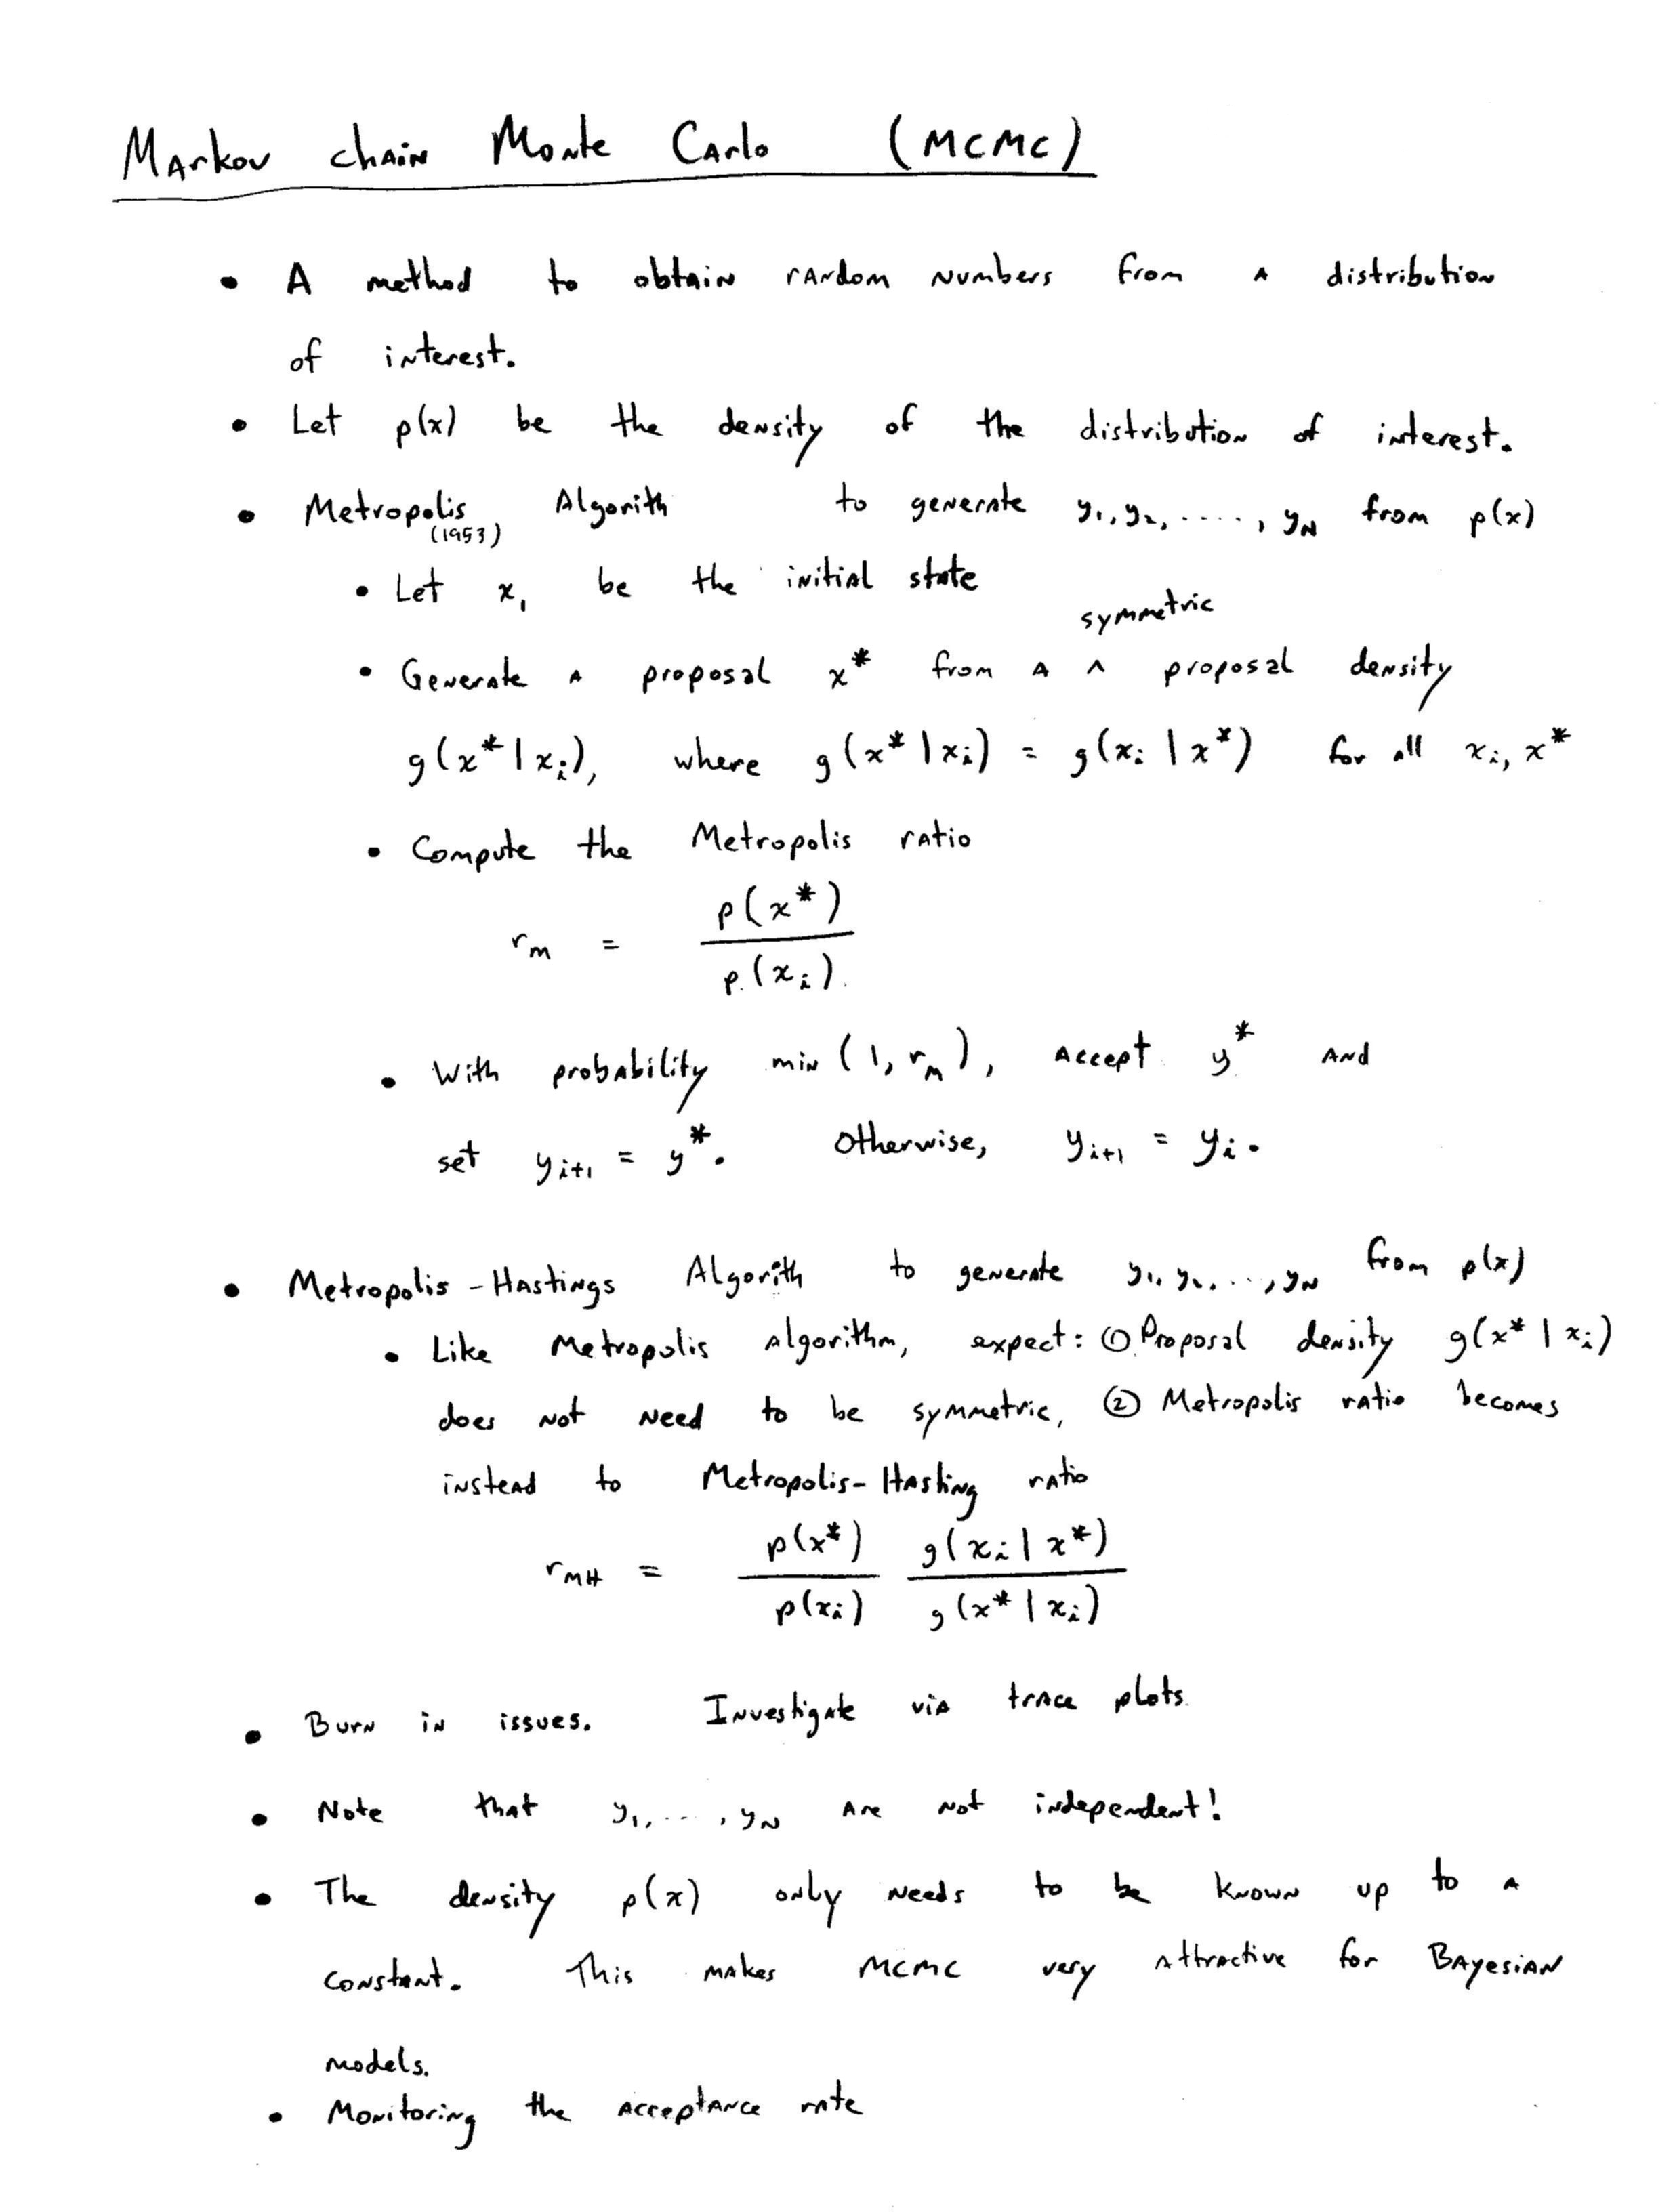 Markov chain Monte Carlo (MCMC)
• A method to obtain random numbers from a distribution
of interest.
• Let p(x) be the density of the distribution of interest.
• Metropolis Algorith to generate y₁, y₂, ....., y_N from p(x)
(1953)
• Let x₁ be the initial state
symmetric
• Generate a proposal x* from a ^ proposal density
g(x*|x_i), where g(x*|x_i) = g(x_i|x*) for all x_i, x*
• Compute the Metropolis ratio
r_M = p(x*) / p(x_i)
• With probability min(1, r_M), accept y* and
set y_{i+1} = y*. Otherwise, y_{i+1} = y_i.
• Metropolis-Hastings Algorith to generate y₁, y₂, ..., y_N from p(x)
• Like Metropolis algorithm, expect: ① Proposal density g(x*|x_i)
does not need to be symmetric, ② Metropolis ratio becomes
instead to Metropolis-Hasting ratio
r_MH = p(x*) / p(x_i) g(x_i|x*) / g(x*|x_i)
• Burn in issues. Investigate via trace plots.
• Note that y₁, ..., y_N are not independent!
• The density p(x) only needs to be known up to a
constant. This makes MCMC very attractive for Bayesian
models.
• Monitoring the acceptance rate